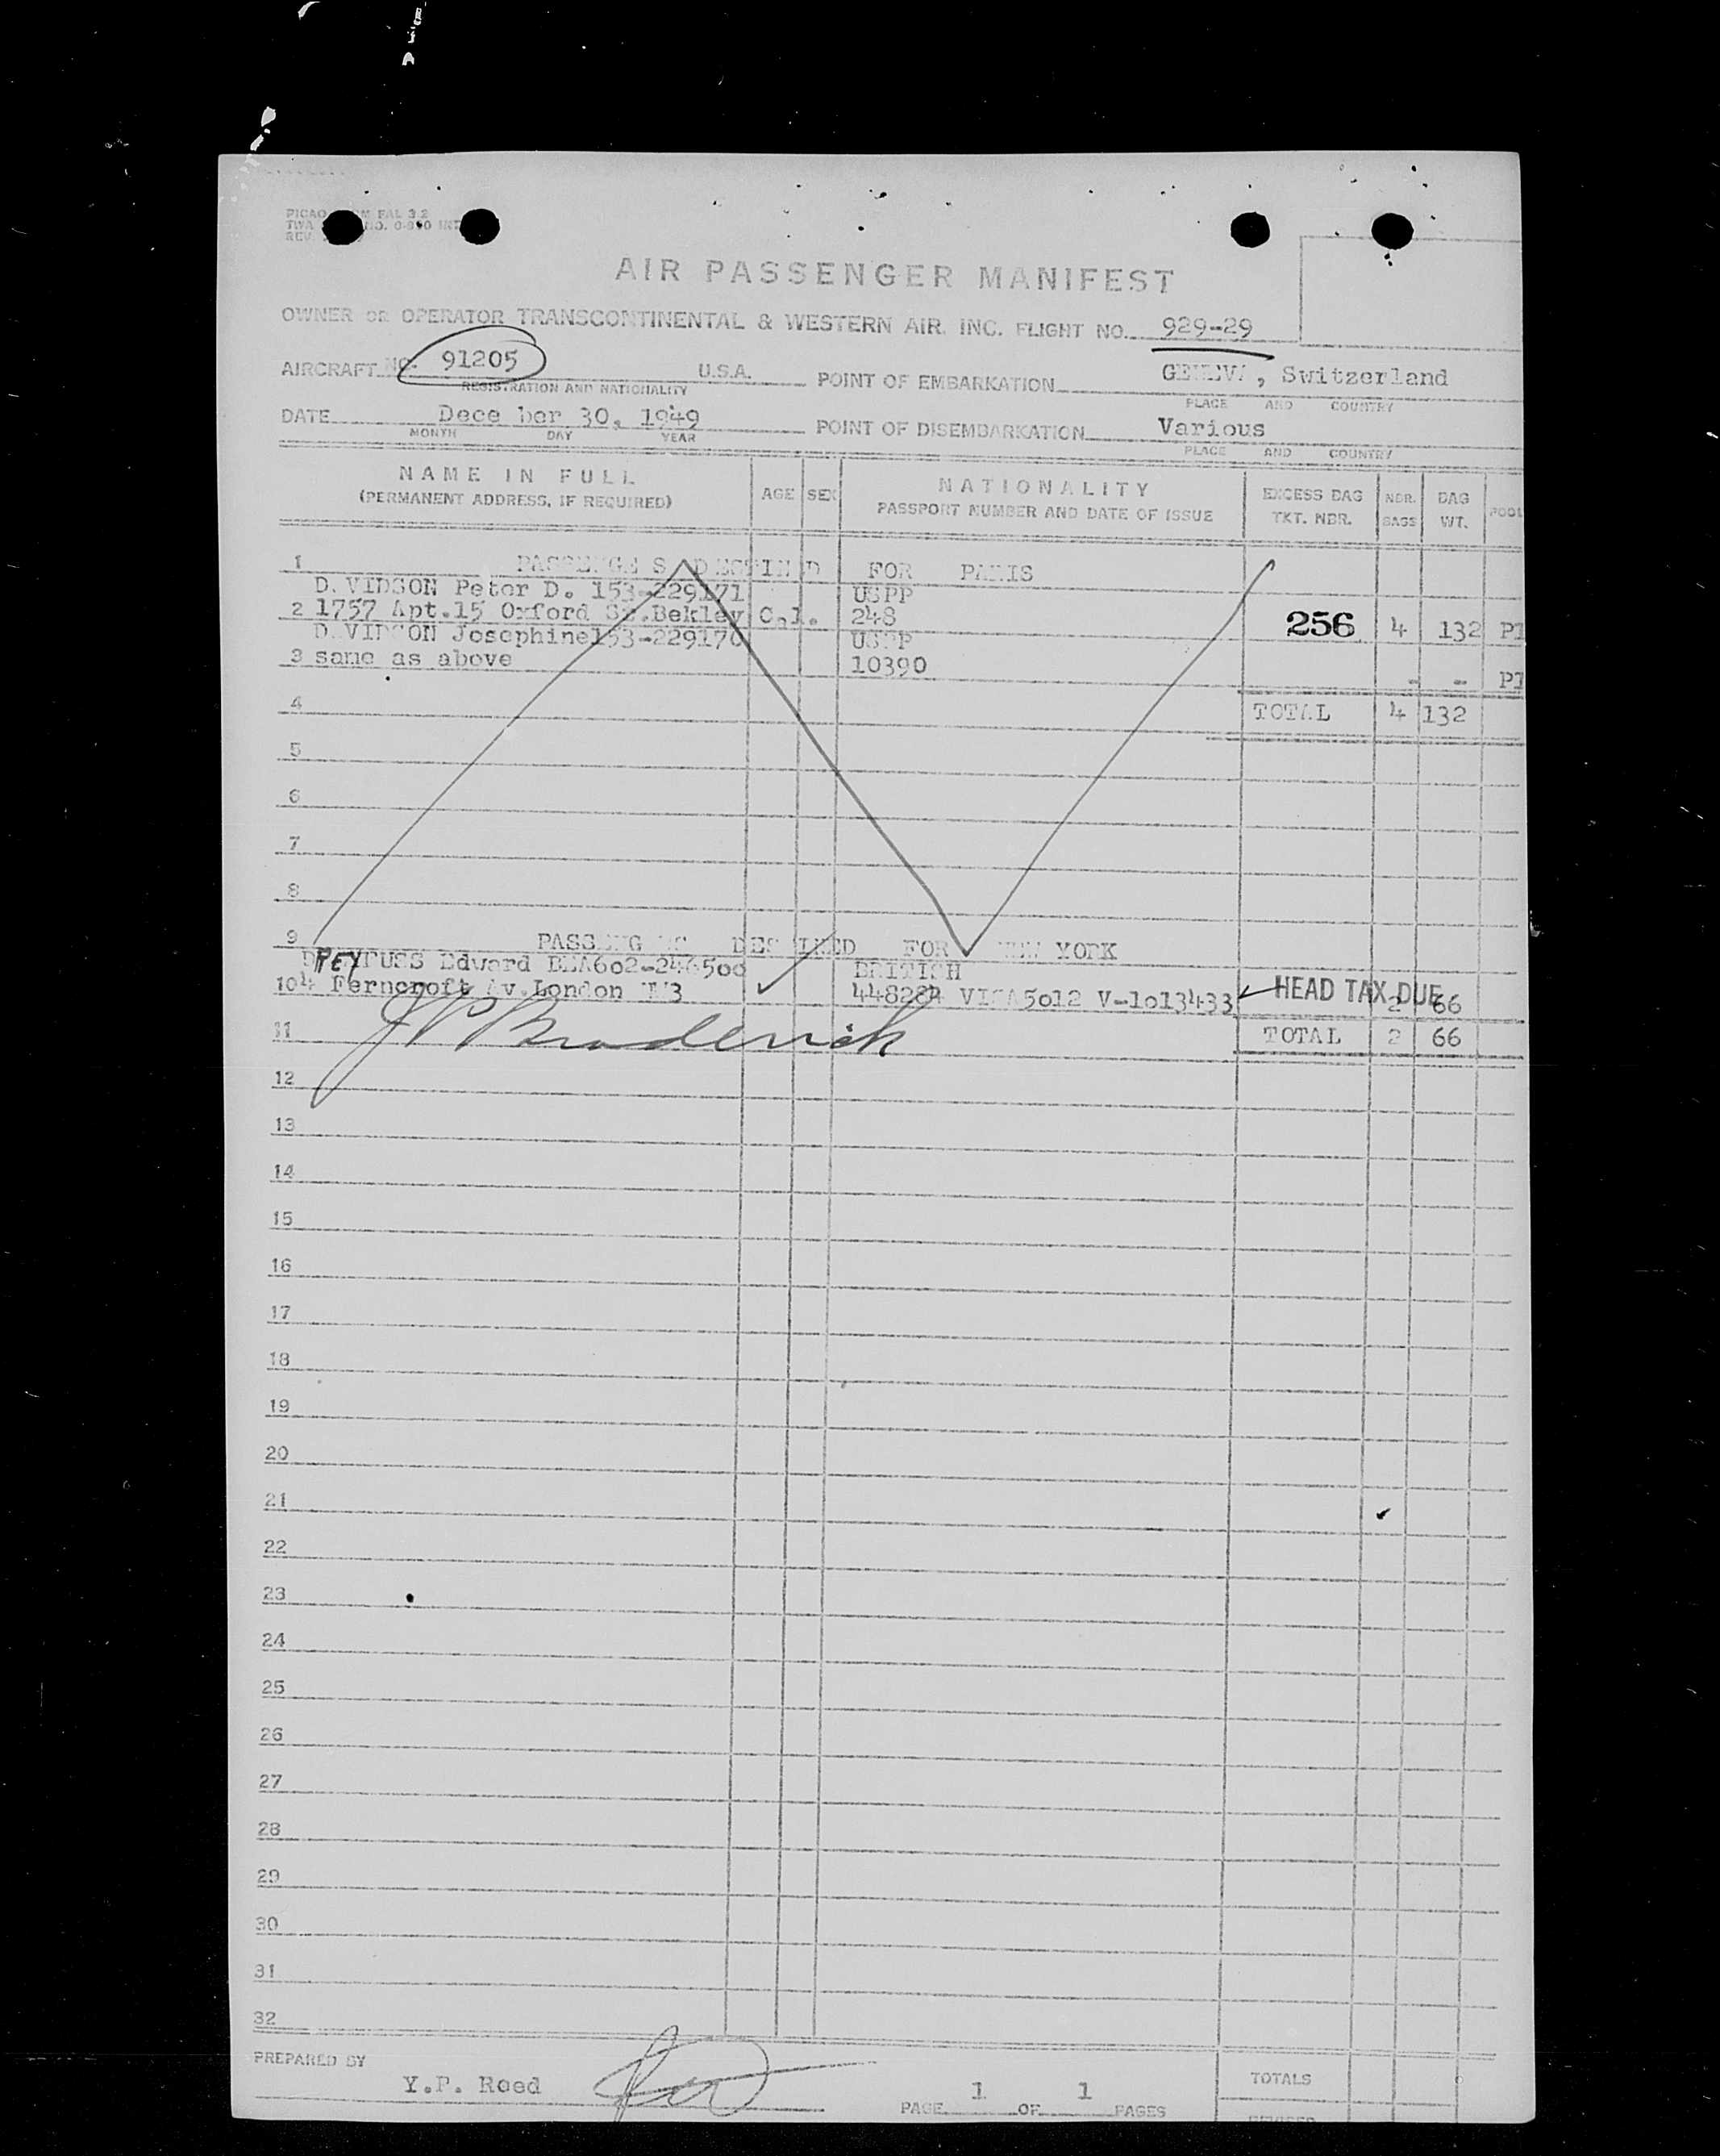 PICAO FAL 3.2
TWA NO. 0-810 INT
REV.
AIR PASSENGER MANIFEST
OWNER OR OPERATOR TRANSCONTINENTAL & WESTERN AIR. INC. FLIGHT NO. 929-29
AIRCRAFT NO. 91205 U.S.A. POINT OF EMBARKATION GENEVA, Switzerland
REGISTRATION AND NATIONALITY PLACE AND COUNTRY
DATE Dece ber 30, 1949 POINT OF DISEMBARKATION Various
MONTH DAY YEAR PLACE AND COUNTRY
NAME IN FULL AGE SEX NATIONALITY EXCESS BAG NBR. BAG POOL
(PERMANENT ADDRESS, IF REQUIRED) PASSPORT NUMBER AND DATE OF ISSUE TKT. NBR. BAGS WT.
1 PASSENGE S DESTIN D FOR PARIS
D.VIDSON Peter D. 153-229171 USPP
2 1757 Apt.15 Oxford St.Bekley Cal. 248 256 4 132 PT
D.VIDSON Josephine153-229170 USPP
3 same as above 10390 - - PT
4 TOTAL 4 132
5
6
7
8
9 PASSENG DESTINED FOR NEW YORK
DREYFUSS Edward BEA602-246500 BRITISH
10 4 Ferncroft Av.London NW3 448284 VISA5012 V-1013433 HEAD TAX DUE 2 66
11 J P Broderick TOTAL 2 66
12
13
14
15
16
17
18
19
20
21
22
23
24
25
26
27
28
29
30
31
32
PREPARED BY TOTALS
Y.P. Reed 1 1
PAGE OF PAGES